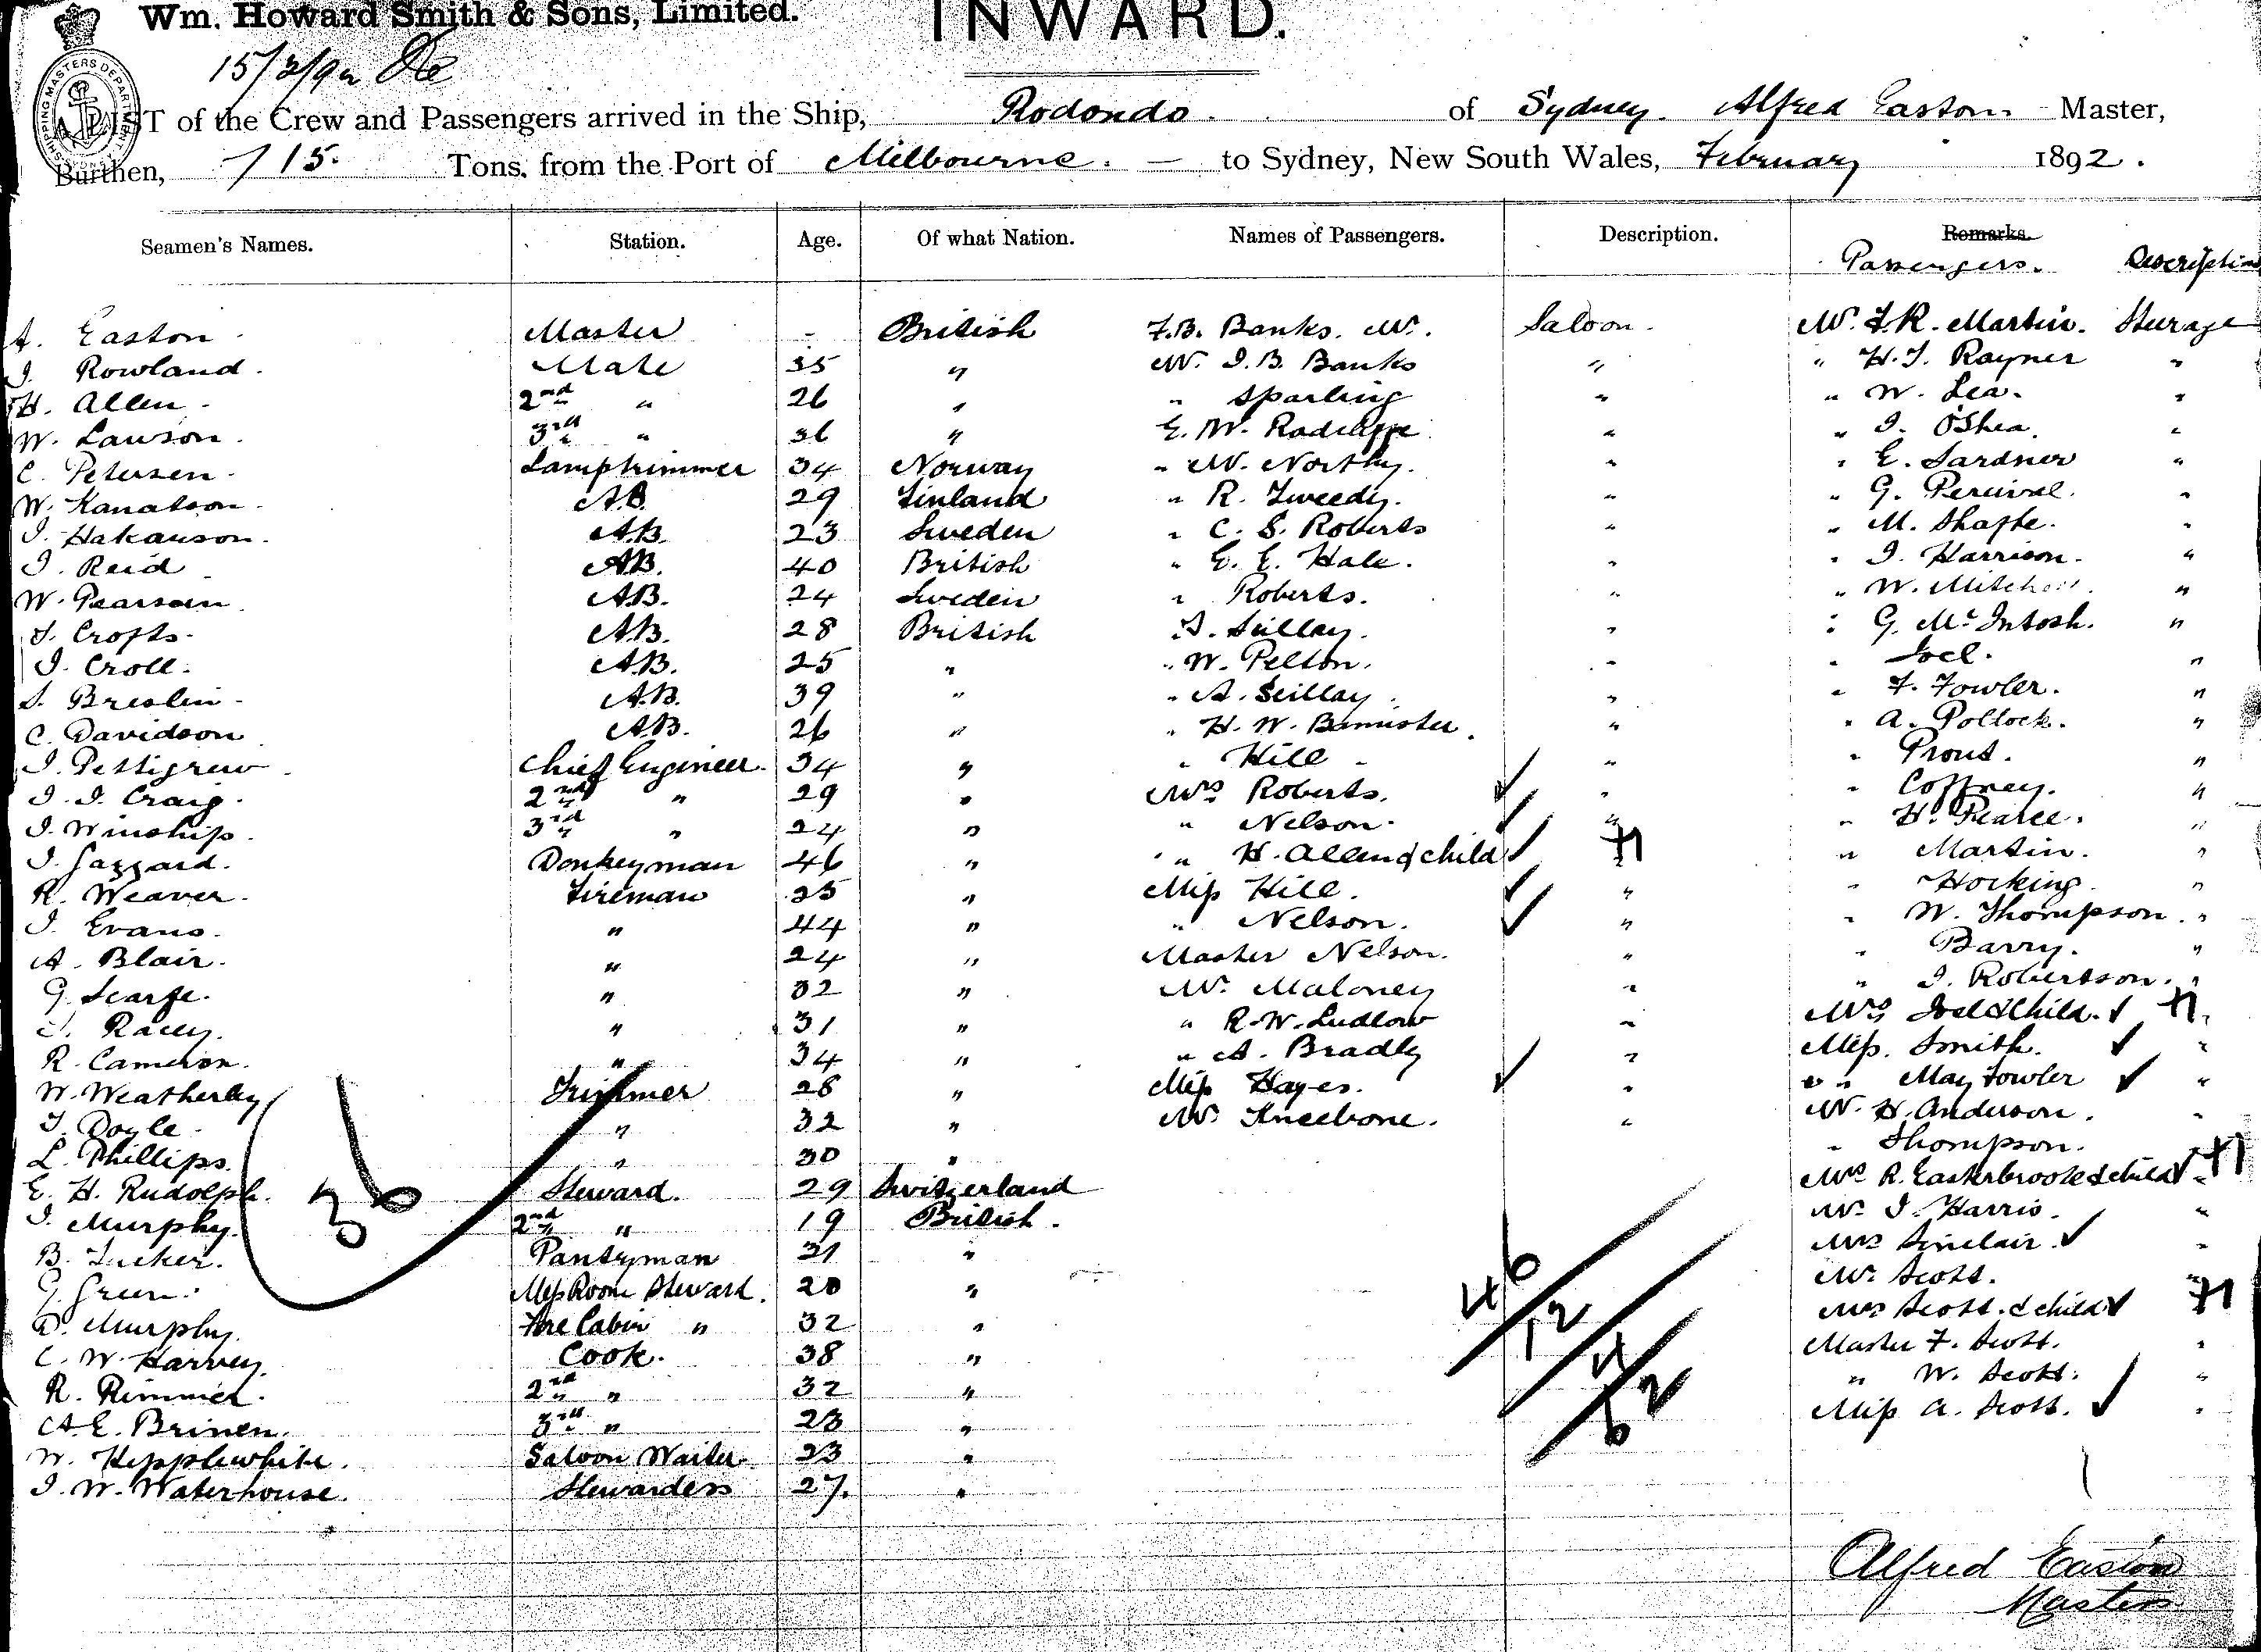 Wm. Howard Smith & Sons, Limited. INWARD.
15/2/92
LIST of the Crew and Passengers arrived in the Ship, Rodondo. of Sydney. Alfred Easton Master,
Burthen, 715. Tons, from the Port of Melbourne. — to Sydney, New South Wales, February 1892.
Seamen's Names. Station. Age. Of what Nation. Names of Passengers. Description. Remarks.
Passengers. Description
A. Easton Master - British F.B. Banks. Mr. Saloon. Mr. F.R. Martin. Sturage
J. Rowland. Mate 35 " Mr. J.B. Banks " " H.J. Rayner "
H. Allen. 2nd " 26 " " Sparling " " W. Lea. "
W. Lawson. 3rd " 36 " E. W. Radcliffe " " J. O'Shea. "
C. Petersen. Lamptrimmer 34 Norway " W. Northy. " " E. Gardner "
W. Kanatson. A.B. 29 Finland " R. Tweedy. " " G. Percival. "
J. Hakanson. A.B. 23 Sweden " C. S. Roberts " " M. "
J. Reid A.B. 40 British " E. E. Hale. " " J. Harrison. "
W. Pearson A.B. 24 Sweden " Roberts. " " W. Mitchell. "
T. Crofts. A.B. 28 British " " G. McIntosh. "
J. Croll. A.B. 25 " " W. Pelton. " " Joel. "
S. Breslin. A.B. 39 " " A. " " F. Fowler. "
C. Davidson A.B. 26 " " H. W. Bannister. " " A. Pollock. "
J. Pettigrew. Chief Engineer. 34 " " Hill " " Prout. "
J. J. Craig. 2nd " 29 " Mrs Roberts. " " Coffney. "
J. Winship. 3rd " 24 " " Nelson. " " H. Pearce. "
J. Gazzard. Donkeyman 46 " " H. Allen & child +1 " Martin. "
R. Weaver. Fireman 25 " Miss Hill. " " Hocking. "
J. Evans. " 44 " " Nelson. " " W. Thompson. "
A. Blair. " 24 " Master Nelson. " " Barry. "
G. Scarfe. " 32 " Mr. Maloney " " J. Robertson. "
J. Racey. " 31 " " R.W. Ludlow " Mrs Joel & Child. +1.
R. Cameron. " 34 " " A. Bradly " Miss. Smith. "
W. Weatherley Trimmer 28 " Miss Hayes. " " May Fowler "
T. Doyle. " 32 " Mr. Kneebone. " Mr. H. Anderson. "
L. Phillips. " 30 " " Thompson.
E. H. Rudolph. Steward. 29 Switzerland Mrs R. Easterbrook & child +1
J. Murphy. 2nd " 19 British. Mr. J. Harris. "
B. Tucker. Pantryman 31 " Mrs Sinclair. "
G. Green. Mess Room Steward. 20 " Mr. Scott. "
D. Murphy. Fore Cabin " 32 " Mrs Scott. & child +1
C. W. Harvey. Cook. 38 " Master F. Scott. "
R. Rimmer. 2nd " 32 " " W. Scott. "
A.E. Brinen. 3rd " 23 " Miss A. Scott. "
W. Hepplewhite. Saloon Waiter 23 "
J. W. Waterhouse. Stewardess 27. "
36
46
12
4
62
Alfred Easton
Master